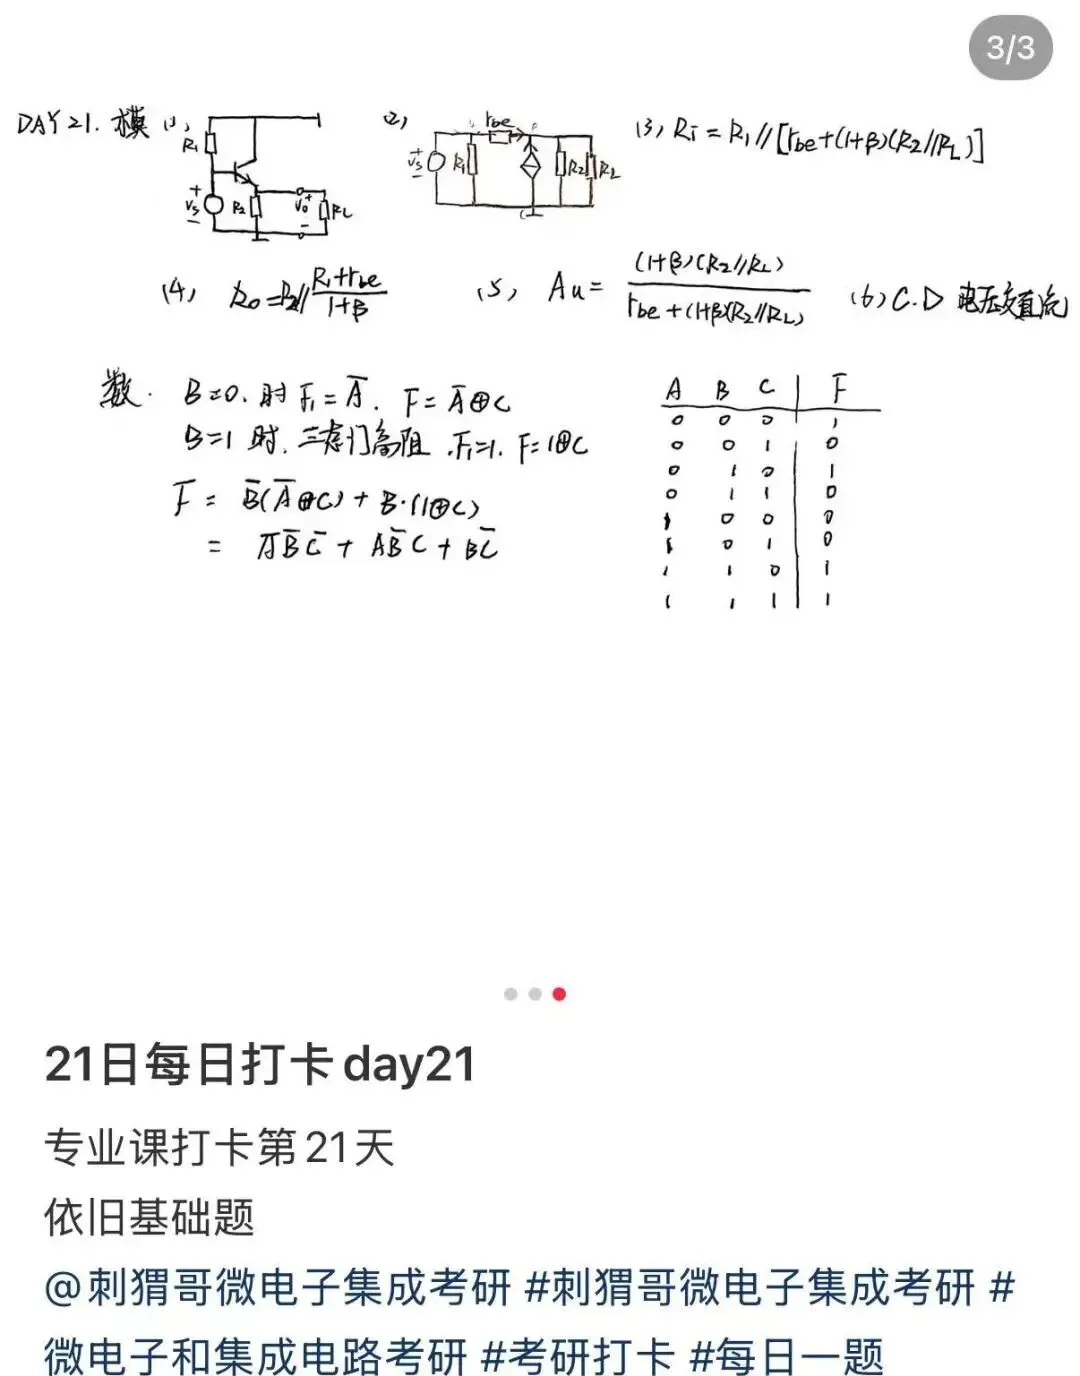 3/3
DAY 21. 模 (1)
R₁
+
Vs
−
R₂
+
Vo
−
RL
(2)
rbe
+
Vs
−
R₁
R₂
RL
(3) Ri = R₁//[rbe+(1+β)(R₂//RL)]
(4) Ro=R₂//(R₁+rbe)/(1+β)
(5) Au= (1+β)(R₂//RL)/(rbe+(1+β)(R₂//RL))
(6) C.D 电压交直流
数. B=0.时 F₁=A̅. F=A̅⊕C
B=1 时.三态门高阻.F₁=1. F=1⊕C
F = B̅(A̅⊕C)+B·(1⊕C)
= A̅B̅C̅+AB̅C+BC̅
A B C F
0 0 0 1
0 0 1 0
0 1 0 1
0 1 1 0
1 0 0 0
1 0 1 0
1 1 0 1
1 1 1 1
21日每日打卡day21
专业课打卡第21天
依旧基础题
@刺猬哥微电子集成考研 #刺猬哥微电子集成考研 #
微电子和集成电路考研 #考研打卡 #每日一题